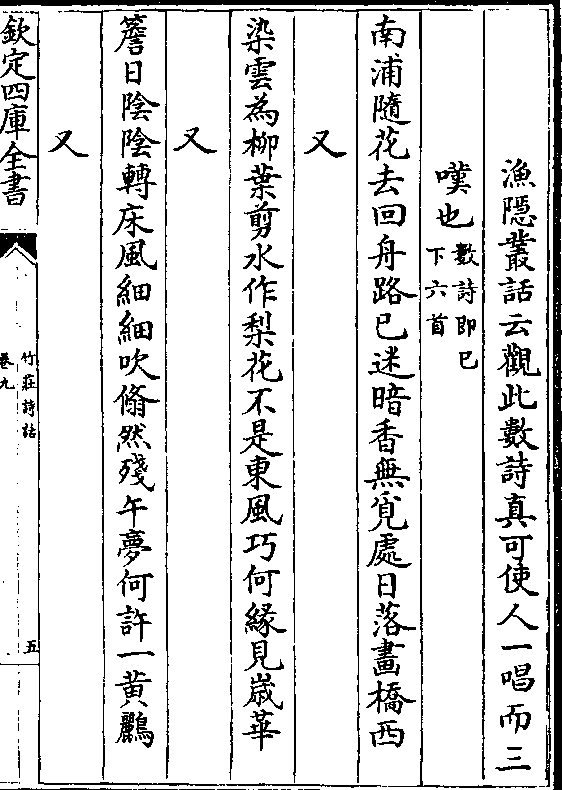 漁隱叢話云觀此數詩真可使人一唱而三
嘆也數詩即已下六首
南浦隨花去回舟路已迷暗香無覓處日落畫橋西
又
染雲為柳葉剪水作梨花不是東風巧何緣見歲華
又
簷日陰陰轉床風細細吹翛然殘午夢何許一黄鸝
又
欽定四庫全書
竹莊詩話
卷九
五